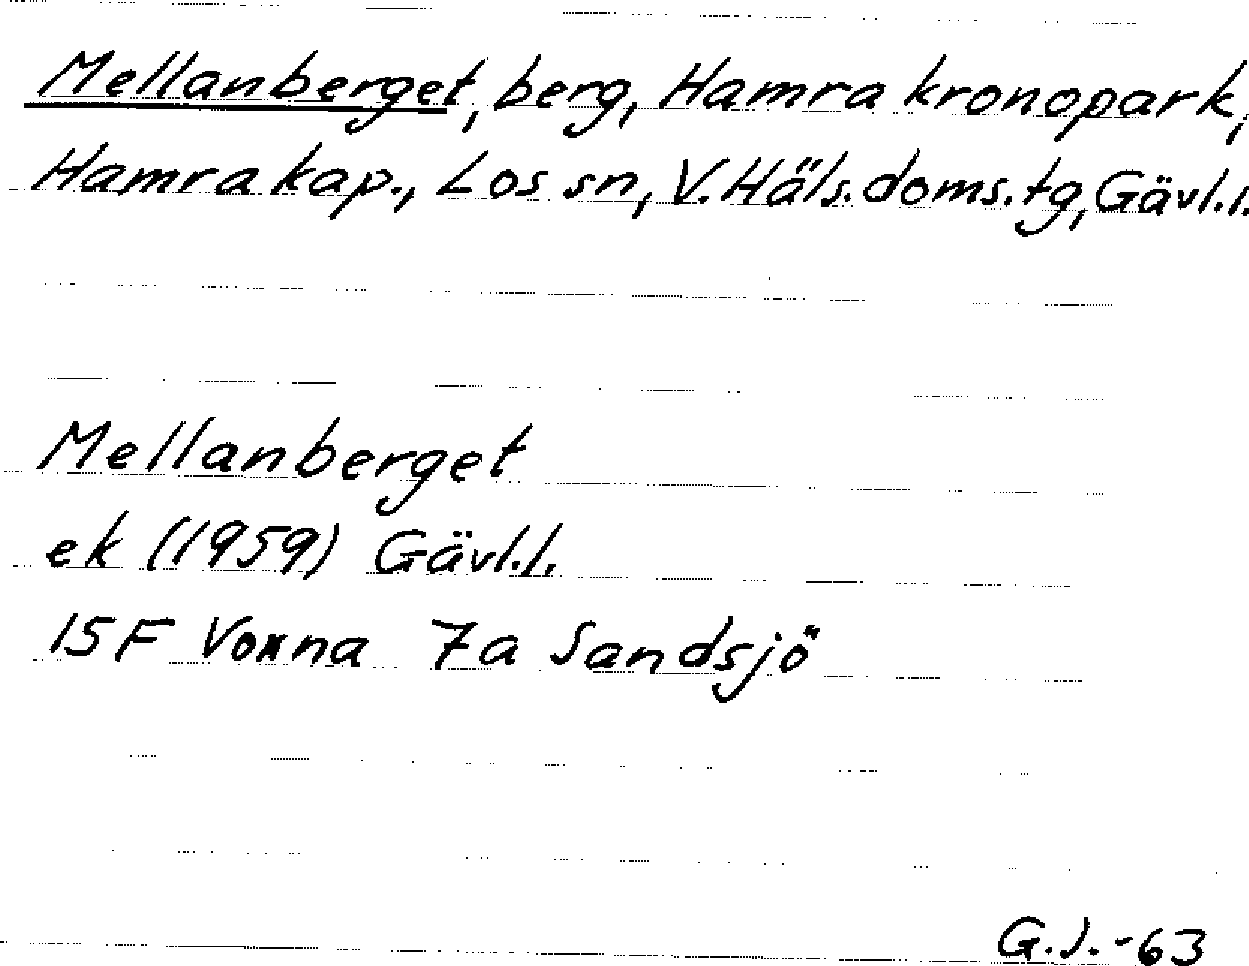 Mellanberget, berg, Hamra kronopark,
Hamra kap., Los sn, V. Häls. doms. tg, Gävl. l.
Mellanberget
ek (1959) Gävl. l.
15F Voxna 7a Sandsjö
G.J. -63